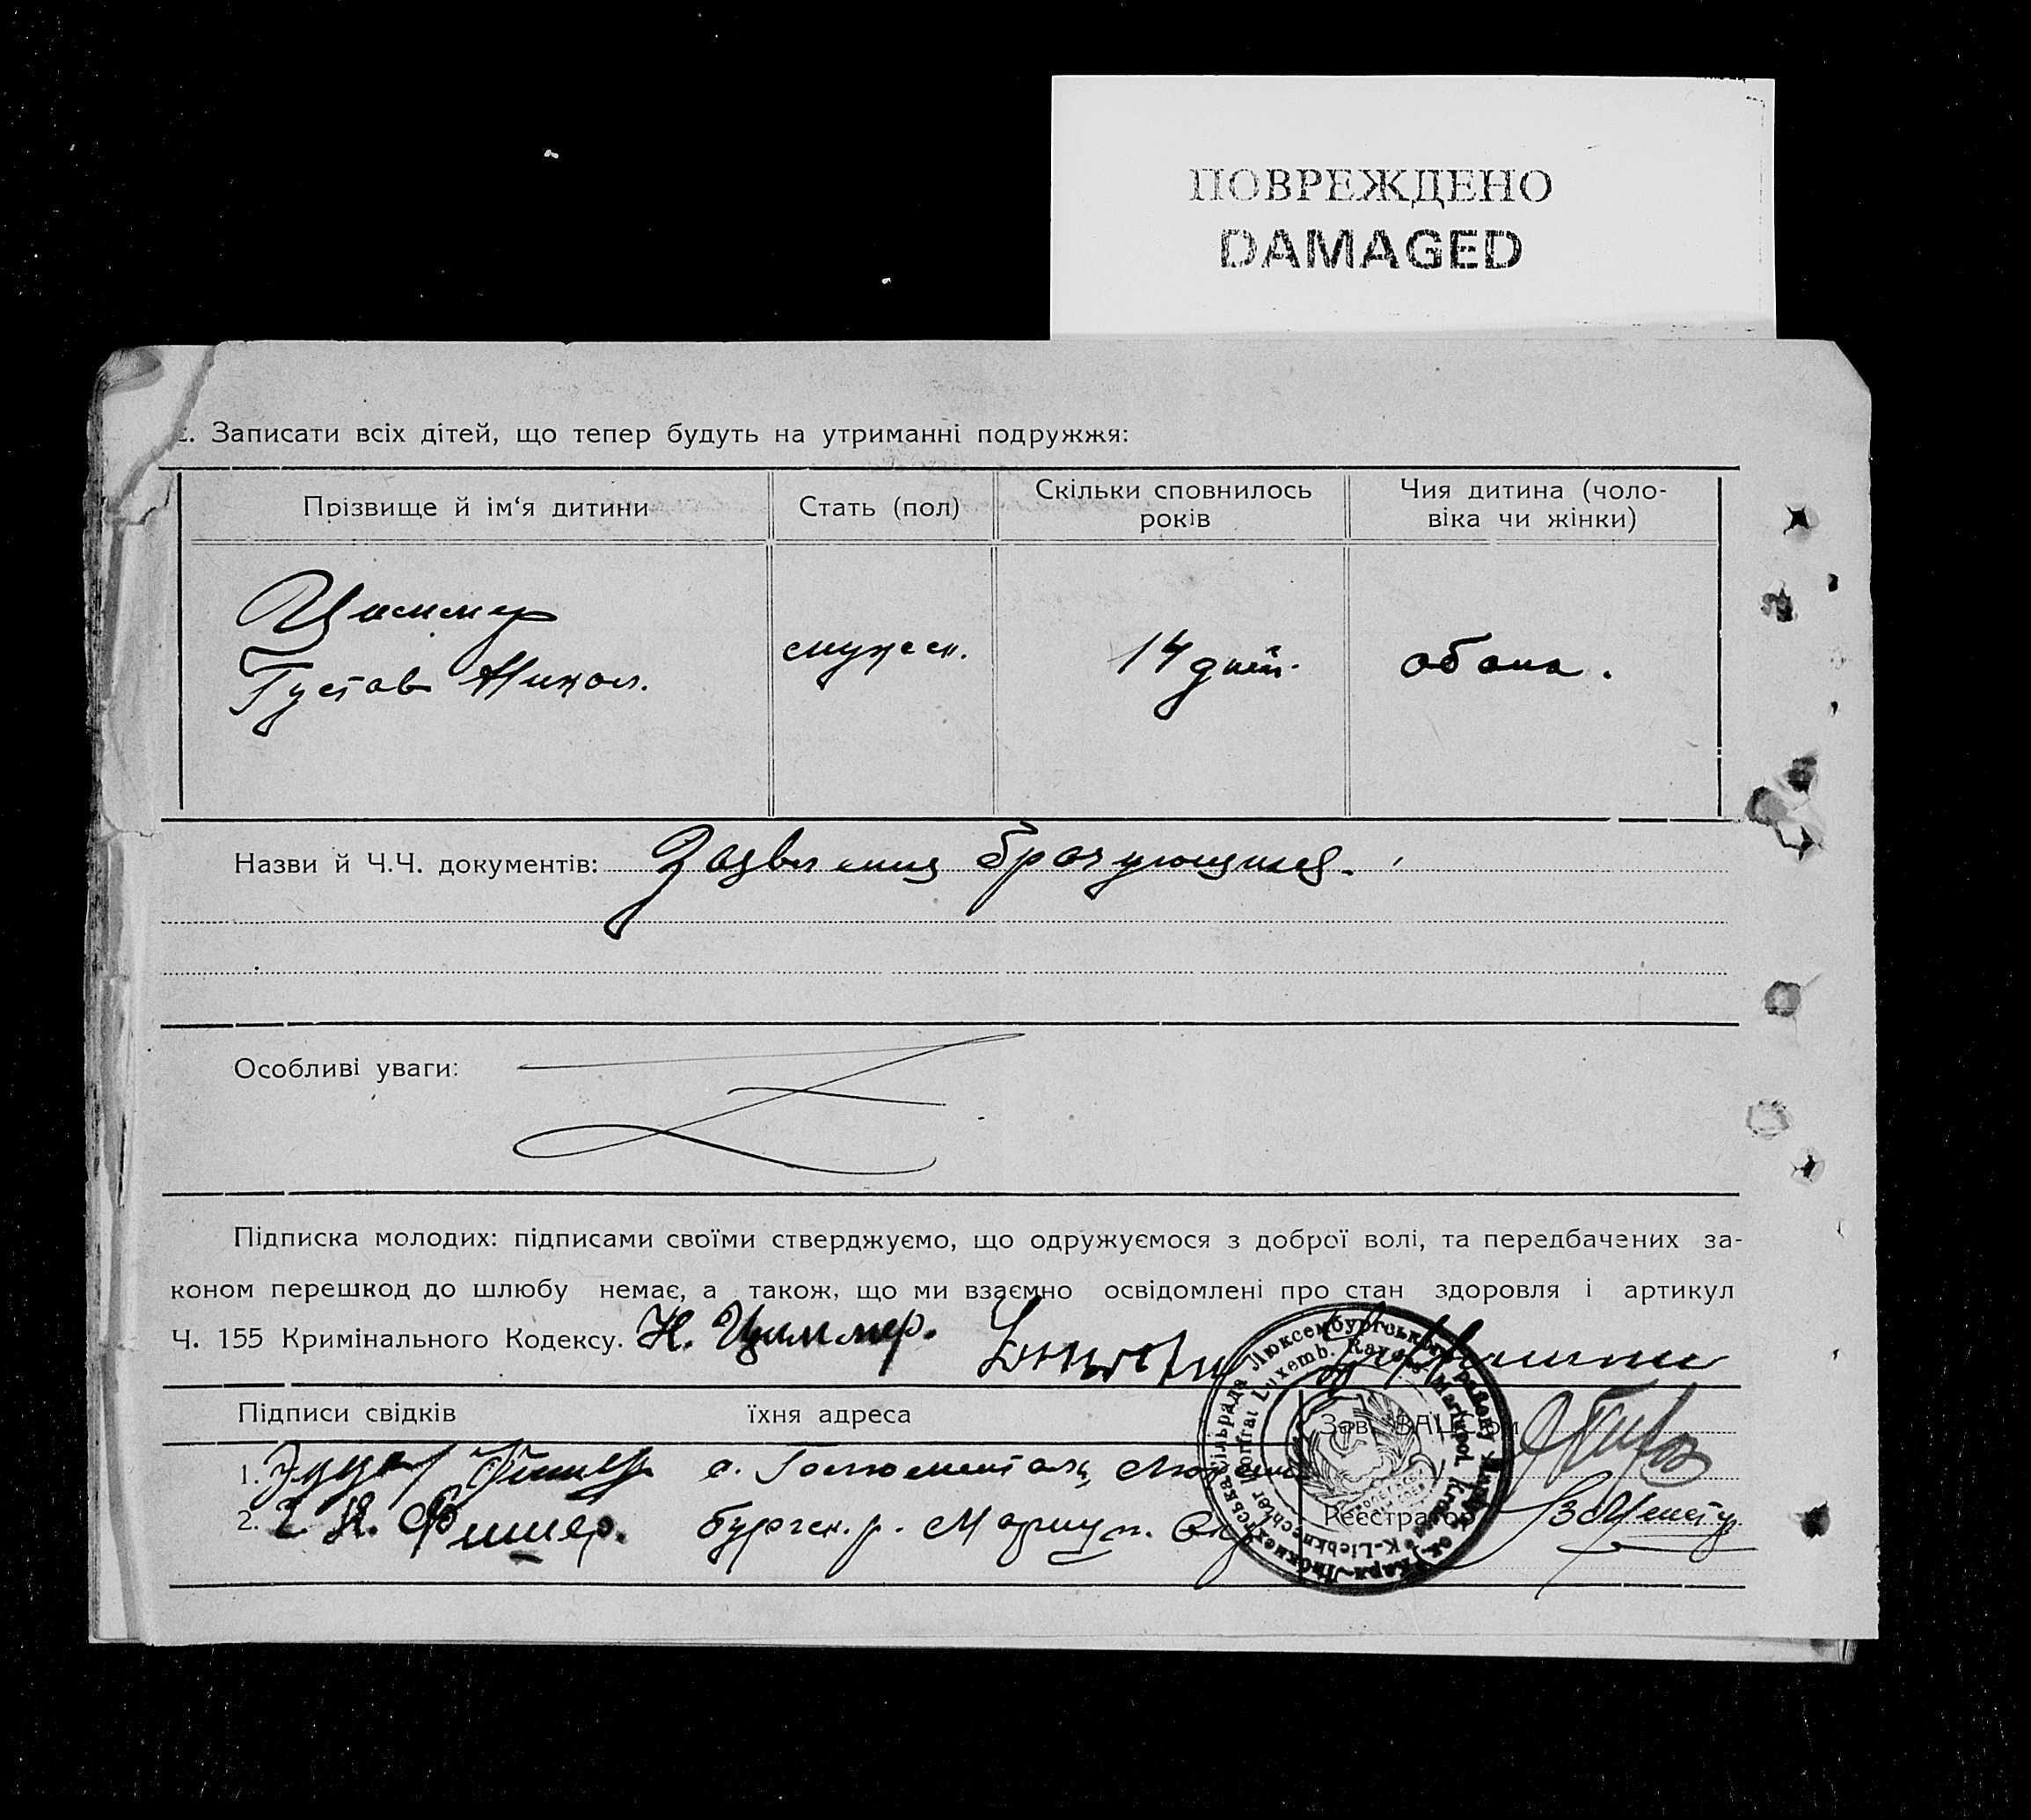 ПОВРЕЖДЕНО
DAMAGED
Записати всіх дітей, що тепер будуть на утриманні подружжя:
Прізвище й ім‘я дитини
Стать (пол)
Скільки сповнилось
років
Чия дитина (чоло-
віка чи жінки)
Циммер
Густав Никол.
мужеск.
14 дней.
обоих.
Назви й Ч.Ч. документів: Заявления брачующихся.
Особливі уваги:
Підписка молодих: підписами своїми стверджуємо, що одружуємося з доброї волі, та передбачених за-
коном перешкод до шлюбу немає, а також, що ми взаємно освідомлені про стан здоровля і артикул
Ч. 155 Кримінального Кодексу. Н. Циммер.
Підписи свідків
їхня адреса
Зав. ЗАЦСом
1. Фишер
2. Фишер.
Люксем
бургск. р. Мариуп. Окр
Реєстратор